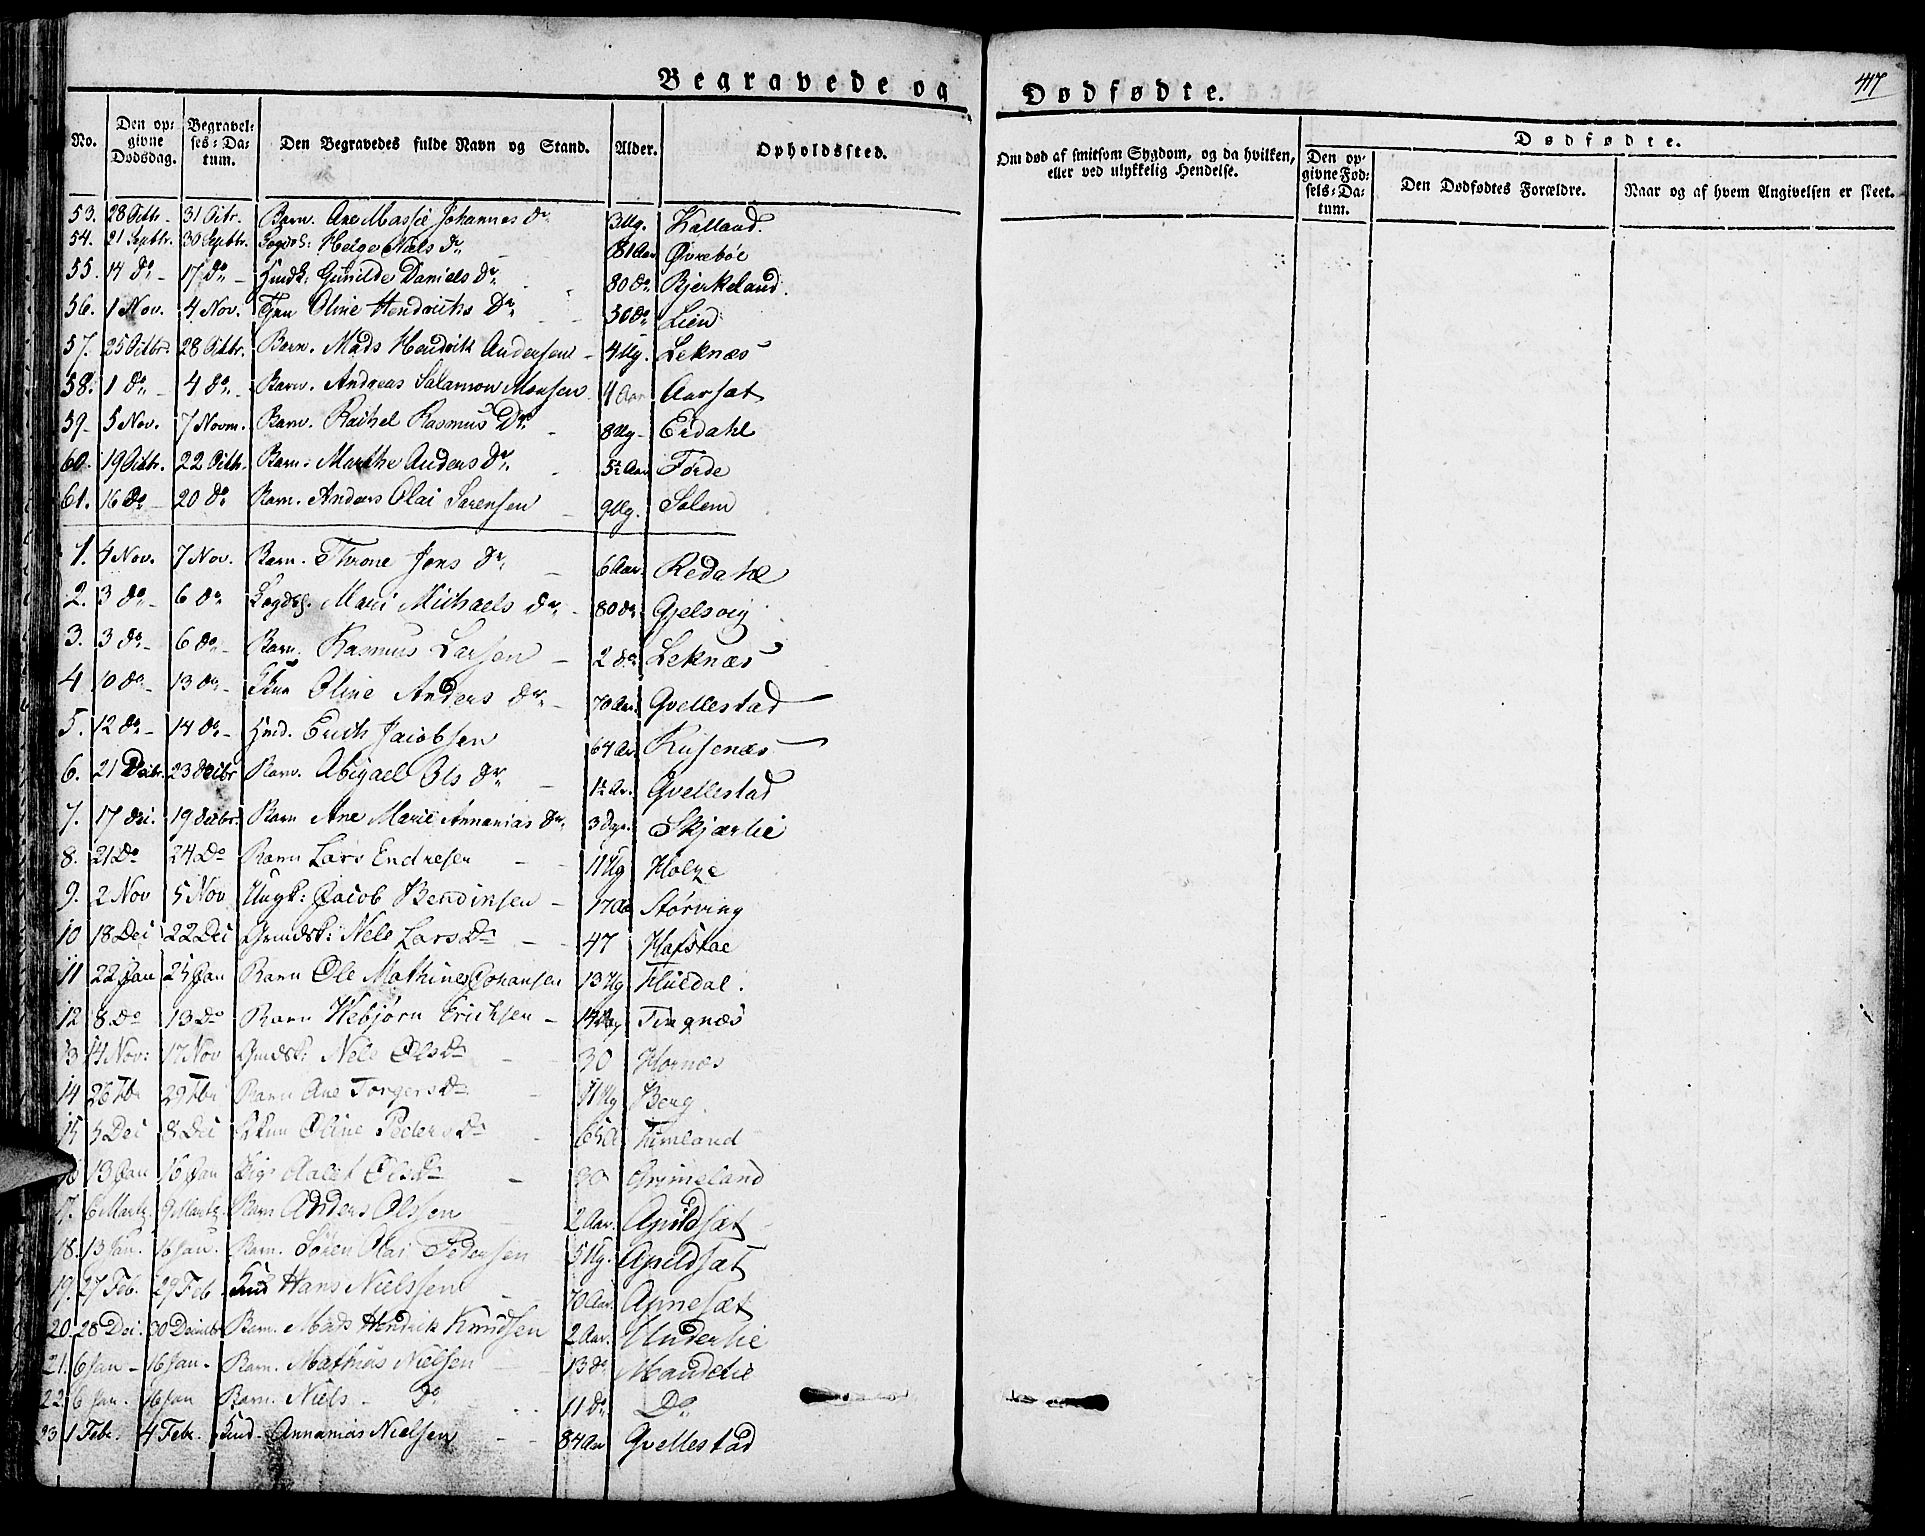 Begravede og Dødfødte.
417
No. Den opgivne Dødsdag. Begravelses-Datum. Den Begravedes fulde Navn og Stand. Alder. Opholdssted. Om død af smitsom Sygdom, og da hvilken, eller ved ulykkelig Hendelse. Dødfødte.
Den opgivne Fødsels-Datum. Den Dødfødtes Forældre. Naar og af hvem Angivelsen er skeet.
53. 28 Octbr. 31 Octbr. Barn. Ane Massie Johannes Dr. 3 Ug. Kalland.
54. 21 Septbr. 30 Septbr. Helge Niels Dr. 81 Aar Øvrebøe
55. 14 do 17 do Gunilde Daniels Dr. 80 do Bjerkeland.
56. 1 Nov. 4 Nov. Oline Hendrichs Dr. 30 do Lien
57. 25 Octbr. 28 Octbr. Barn. Mads Hendrik Andersen 4 Ug. Leknæs
58. 1 do 4 do Barn. Andreas Salamon Monsen 4 Aar Aarsæt
59. 5 Nov. 7 Novm. Barn. Rachel Rasmus Dr. 8 Ug. Erdahl
60. 19 Octbr. 22 Octb. Barn. Marthe Anders Dr. 5½ Aar Førde
61. 16 Do 20 do Barn. Anders Olai Sørensen 9 Ug. Solem
1. 4 Nov. 7 Nov. Barn. Throne Jens Dr. 6 Aar. Redahl
2. 3 do 6 do Mari Michaels Dr. 80 do Gjelsvig
3. 3 do 6 do Barn. Rasmus Larsen 2 do Leknæs
4 10 do 13 do Oline Anders Dr. 70 Aar. Qvellestad
5. 12 do 14 do Erich Jacobsen 64 Ar Kusenæs
6. 21 Decbr. 23 decbr Barn. Abigael Ols Dr. 1½ Ar. Qvellestad
7. 17 dec. 19 decbr. Barn Ane Marie Annanias Dr. 3 Dge. Skjærlie
8. 21 Do 24 Do Barn Lars Endresen 11 Ug Holze
9. 2 Nov 5 Nov Ungk: Jacob Bendixsen 17 Aa Størving
10 18 Dec 22 Dec Nele Lars Dr 47 Hafstae
11 22 Jan 25 Jan Barn Ole Mathines Johansen 13 Ug
12 8 Do 13 Do Barn Webjørn Erichsen Tingnæs
13 14 Nov: 17 Nov Nele Ols Dr 30 Hornæs
14 26 29 Barn Ane Torgers Dr. 11 Ug Berg.
15 5 Dec 8 Dec Oline Peders Dr 65 Aa Fimland
16 13 Jan 16 Jan Aalet Ols Dr Grimeland
17. 6 Martz. 9 Martz. Barn Anders Olssen 2 Aar. Apildsæt
18. 13 Jan. 16 Jan. Barn. Søren Olai Pedersen 5 Ug. Apildsæt
19. 27 Feb. 29 Feb Hans Nielssen 70 Aar. Agnesæt
20. 28 Dec. 30 Decmbr Barn. Mads Hendrik Knudsen 2 Aar. Underlie
21. 6 Jan 16 Jan. Barn. Mathias Nielsen 13 do Maudelie
22. 6 Jan. 16 Jan Barn. Niels Do 11 do Do
23 1 Febr. 4 Febr. Annanias Nielsen 84 Aar Qvellestad